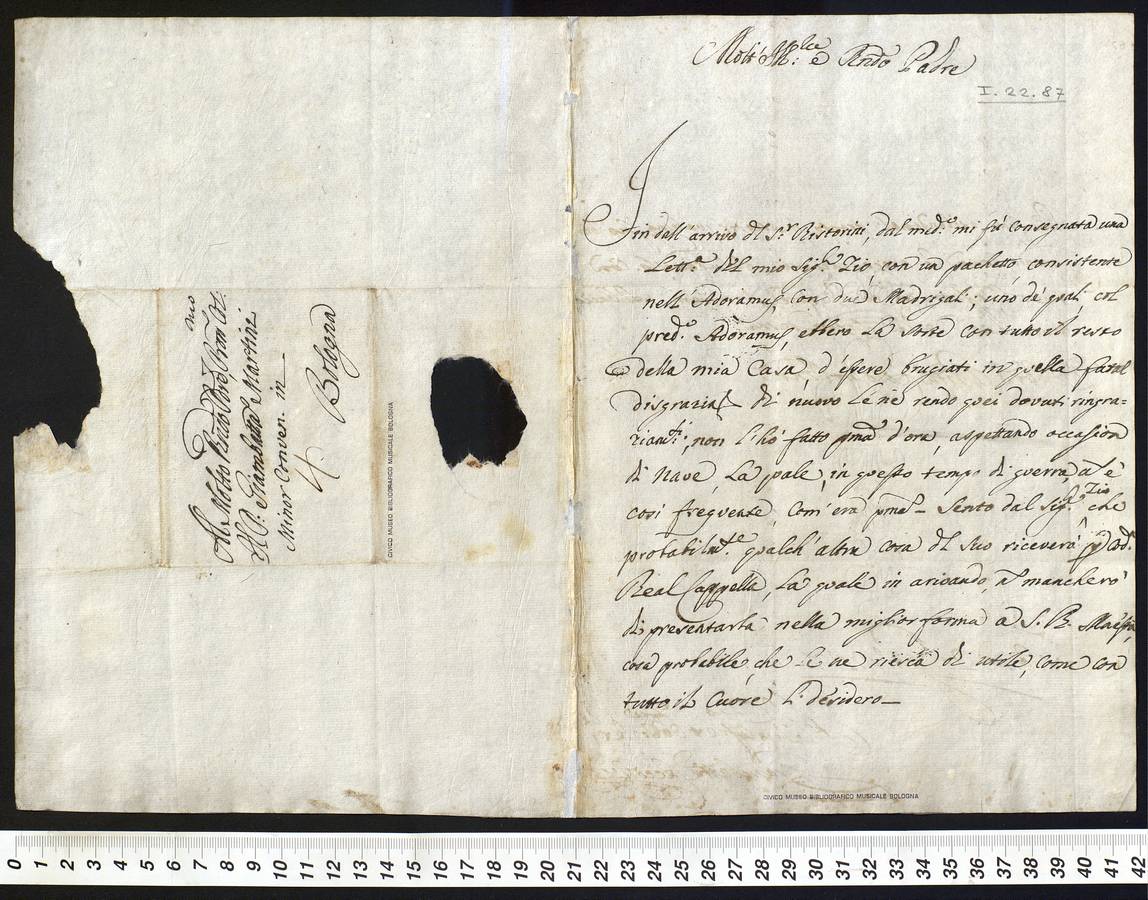 Al Molto Rndo Pdre Pron Col.mo
Il P. Giambatta Martini
Minor Conven. in
4 Bologna
CIVICO MUSEO BIBLIOGRAFICO MUSICALE BOLOGNA
Molt' Ill:ce e Rndo Padre
I. 22. 87
Fin dell'arrivo del S.r Ristorini, dal med.o mi fú consegnata una
Lett.a del mio Sig.r Zio, con un pachetto consistente
nell' Adoramus, con due Madrigali; uno de' quali col
pred.o Adoramus, ebbero la sorte con tutto il resto
della mia Casa d'essere brugiati in quella fatal
disgrazia di nuovo le ne rendo quei dovuti ringra=
ziam.ti, non l'hó fatto pma d'ora, aspettando occasion
di nave, la quale, in questo tempo di guerra, ñ è
così frequente, com'era pma_ Sento dal Sig.r Zio che
probabilm.te qualch'altra cosa del suo riceverá p
Real Cappella, la quale in arivando, ñ mancheró
di presentarla nella miglior forma a S. R. Maestá
cosa probabile, che le ne riesca di utile, come con
tutto il Cuore l. desidero_
CIVICO MUSEO BIBLIOGRAFICO MUSICALE BOLOGNA
0 1 2 3 4 5 6 7 8 9 10 11 12 13 14 15 16 17 18 19 20 21 22 23 24 25 26 27 28 29 30 31 32 33 34 35 36 37 38 39 40 41 42